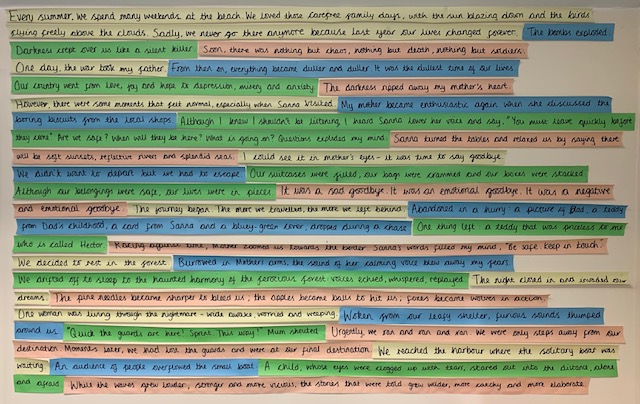 Every summer, we spend many weekends at the beach. We loved those carefree family days, with the sun blazing down and the birds
flying freely above the clouds. Sadly, we never go there anymore because last year our lives changed forever. The bombs exploded.
Darkness crept over us like a silent killer. Soon, there was nothing but chaos, nothing but death, nothing but soldiers.
One day, the war took my father. From then on, everything became duller and duller. It was the dullest time of our lives.
Our country went from love, joy and hope to depression, misery and anxiety. The darkness ripped away my mother's heart.
However, there were some moments that felt normal, especially when Sanna visited. My mother became enthusiastic again when she discussed the
boring biscuits from the local shops. Although I knew I shouldn't be listening, I heard Sanna lower her voice and say, "You must leave quickly before
they come." Are we safe? When will they be here? What is going on? Questions exploded my mind. Sanna turned the tables and relaxed us by saying there
will be soft sunsets, reflective rivers and splendid seas. I could see it in mother's eyes - it was time to say goodbye.
We didn't want to depart but we had to escape. Our suitcases were filled, our bags were crammed and our boxes were stacked.
Although our belongings were safe, our lives were in pieces. It was a sad goodbye. It was an emotional goodbye. It was a negative
and emotional goodbye. The journey began. The more we travelled, the more we left behind. Abandoned in a hurry a picture of Dad, a teddy
from Dad's childhood, a card from Sanna and a bluey-green lover dropped during a chase. One thing left a teddy that was priceless to me
who is called Hector. Racing against time, Mother zoomed us towards the border. Sanna's words filled my mind, "Be safe. Keep in touch."
We decided to rest in the forest. Burrowed in Mother's arms, the sound of her calming voice blew away my fears.
We drifted off to sleep to the haunted harmony of the ferocious forest: voices echoed, whispered, replayed. The night closed in and invaded our
dreams. The pine needles became sharper to bleed us, the apples became balls to hit us, foxes became wolves in action.
One woman was living through the nightmare - wide awake, worried and weeping. Woken from our leafy shelter, furious sounds thumped
around us. "Quick the guards are here! Sprint. This way!" Mum shouted. Urgently, we ran and ran and ran. We were only steps away from our
destination. Moments later, we had lost the guards and were at our final destination. We reached the harbour where the solitary boat was
waiting. An audience of people overflowed the small boat. A child, whose eyes were clogged up with tears, stared out into the distance, alone
and afraid. While the waves grew louder, stronger and more vicious, the stories that were told grew wilder, more earthy and more elaborate.